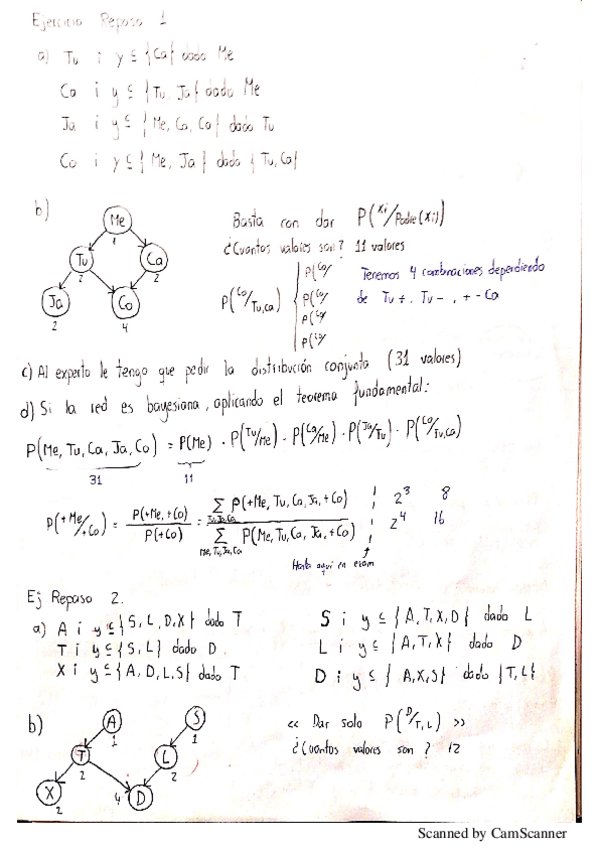 Ejercicio Repaso 1
a) Tu i y ⊆ {Ca} dado Me
Ca i y ⊆ {Tu, Ja} dado Me
Ja i y ⊆ {Me, Ca, Co} dado Tu
Co i y ⊆ {Me, Ja} dado {Tu, Ca}
b)
Me
1
Tu
2
Ca
2
Ja
2
Co
4
Basta con dar P(Xi/Padre(Xi))
¿Cuantos valores son? 11 valores
P(Co/Tu,Ca)
P(Co/
P(Co/
P(Co/
P(Co/
Tenemos 4 combinaciones dependiendo
de Tu+, Tu-, +-Ca
c) Al experto le tengo que pedir la distribución conjunta (31 valores)
d) Si la red es bayesiana, aplicando el teorema fundamental:
P(Me, Tu, Ca, Ja, Co) = P(Me) · P(Tu/Me) · P(Ca/Me) · P(Ja/Tu) · P(Co/Tu,Ca)
31 11
P(+Me/+Co) = P(+Me, +Co) / P(+Co) = Σ Tu,Ja,Ca P(+Me, Tu, Ca, Ja, +Co) / Σ Me,Tu,Ja,Ca P(Me, Tu, Ca, Ja, +Co)
2³ 8
2⁴ 16
Hasta aquí en exam
Ej Repaso 2.
a) A i y ⊆ {S, L, D, X} dado T
T i y ⊆ {S, L} dado D.
X i y ⊆ {A, D, L, S} dado T
S i y ⊆ {A, T, X, D} dado L
L i y ⊆ {A, T, X} dado D
D i y ⊆ {A, X, S} dado {T, L}
b)
A
1
S
1
T
2
L
2
X
2
4
D
<< Dar solo P(D/T,L) >>
¿Cuantos valores son? 12
Scanned by CamScanner